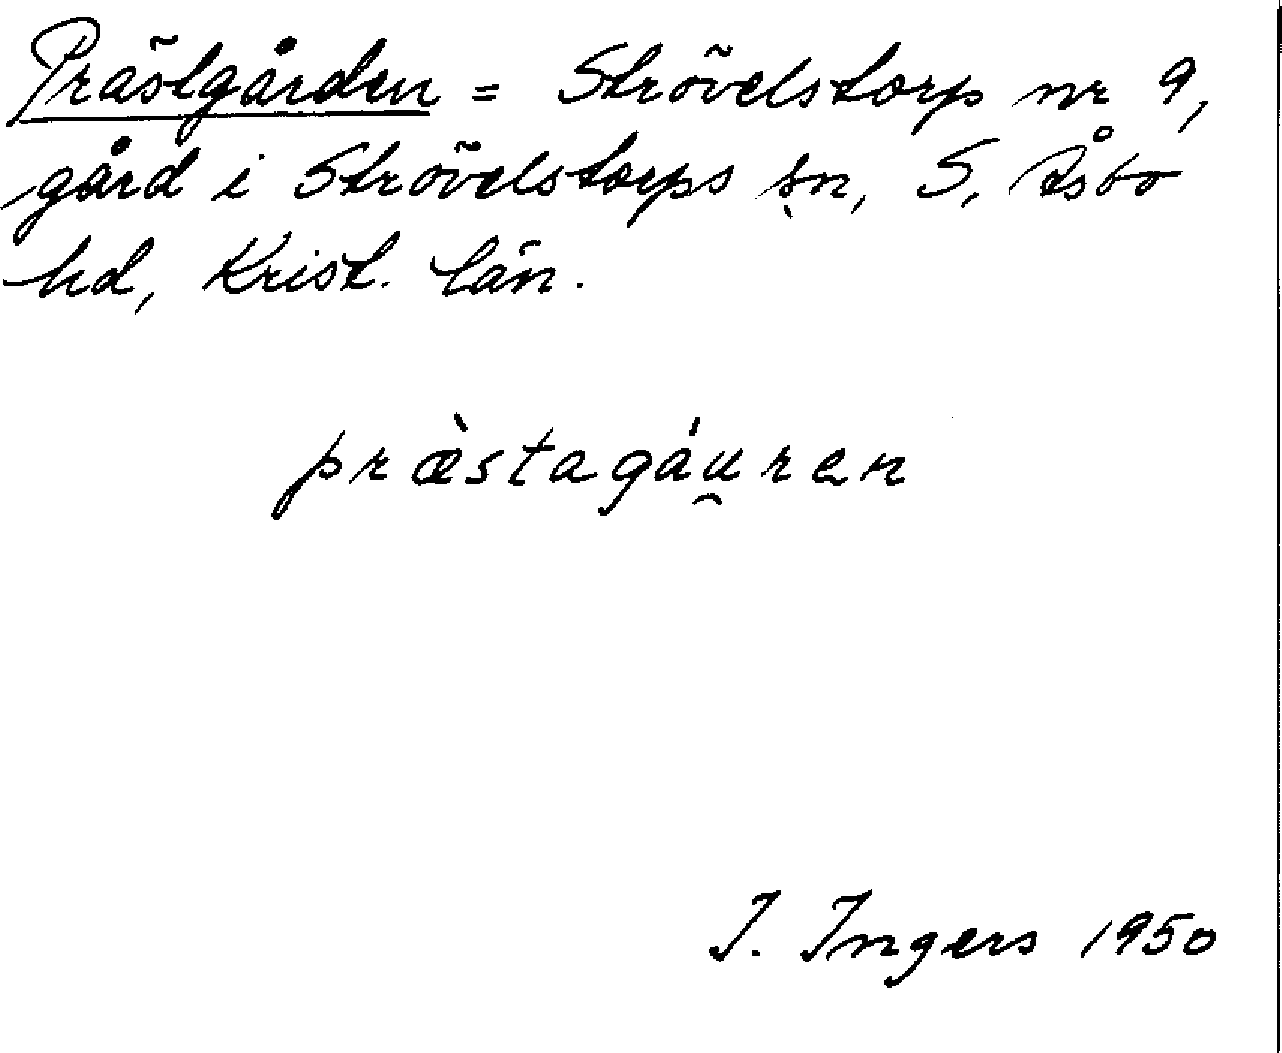 Prästgården = Strövelstorp nr 9,
gård i Strövelstorps sn, S. Åsbo
hd, Krist. län.
præ̀stagáu̯ren
I. Ingers 1950